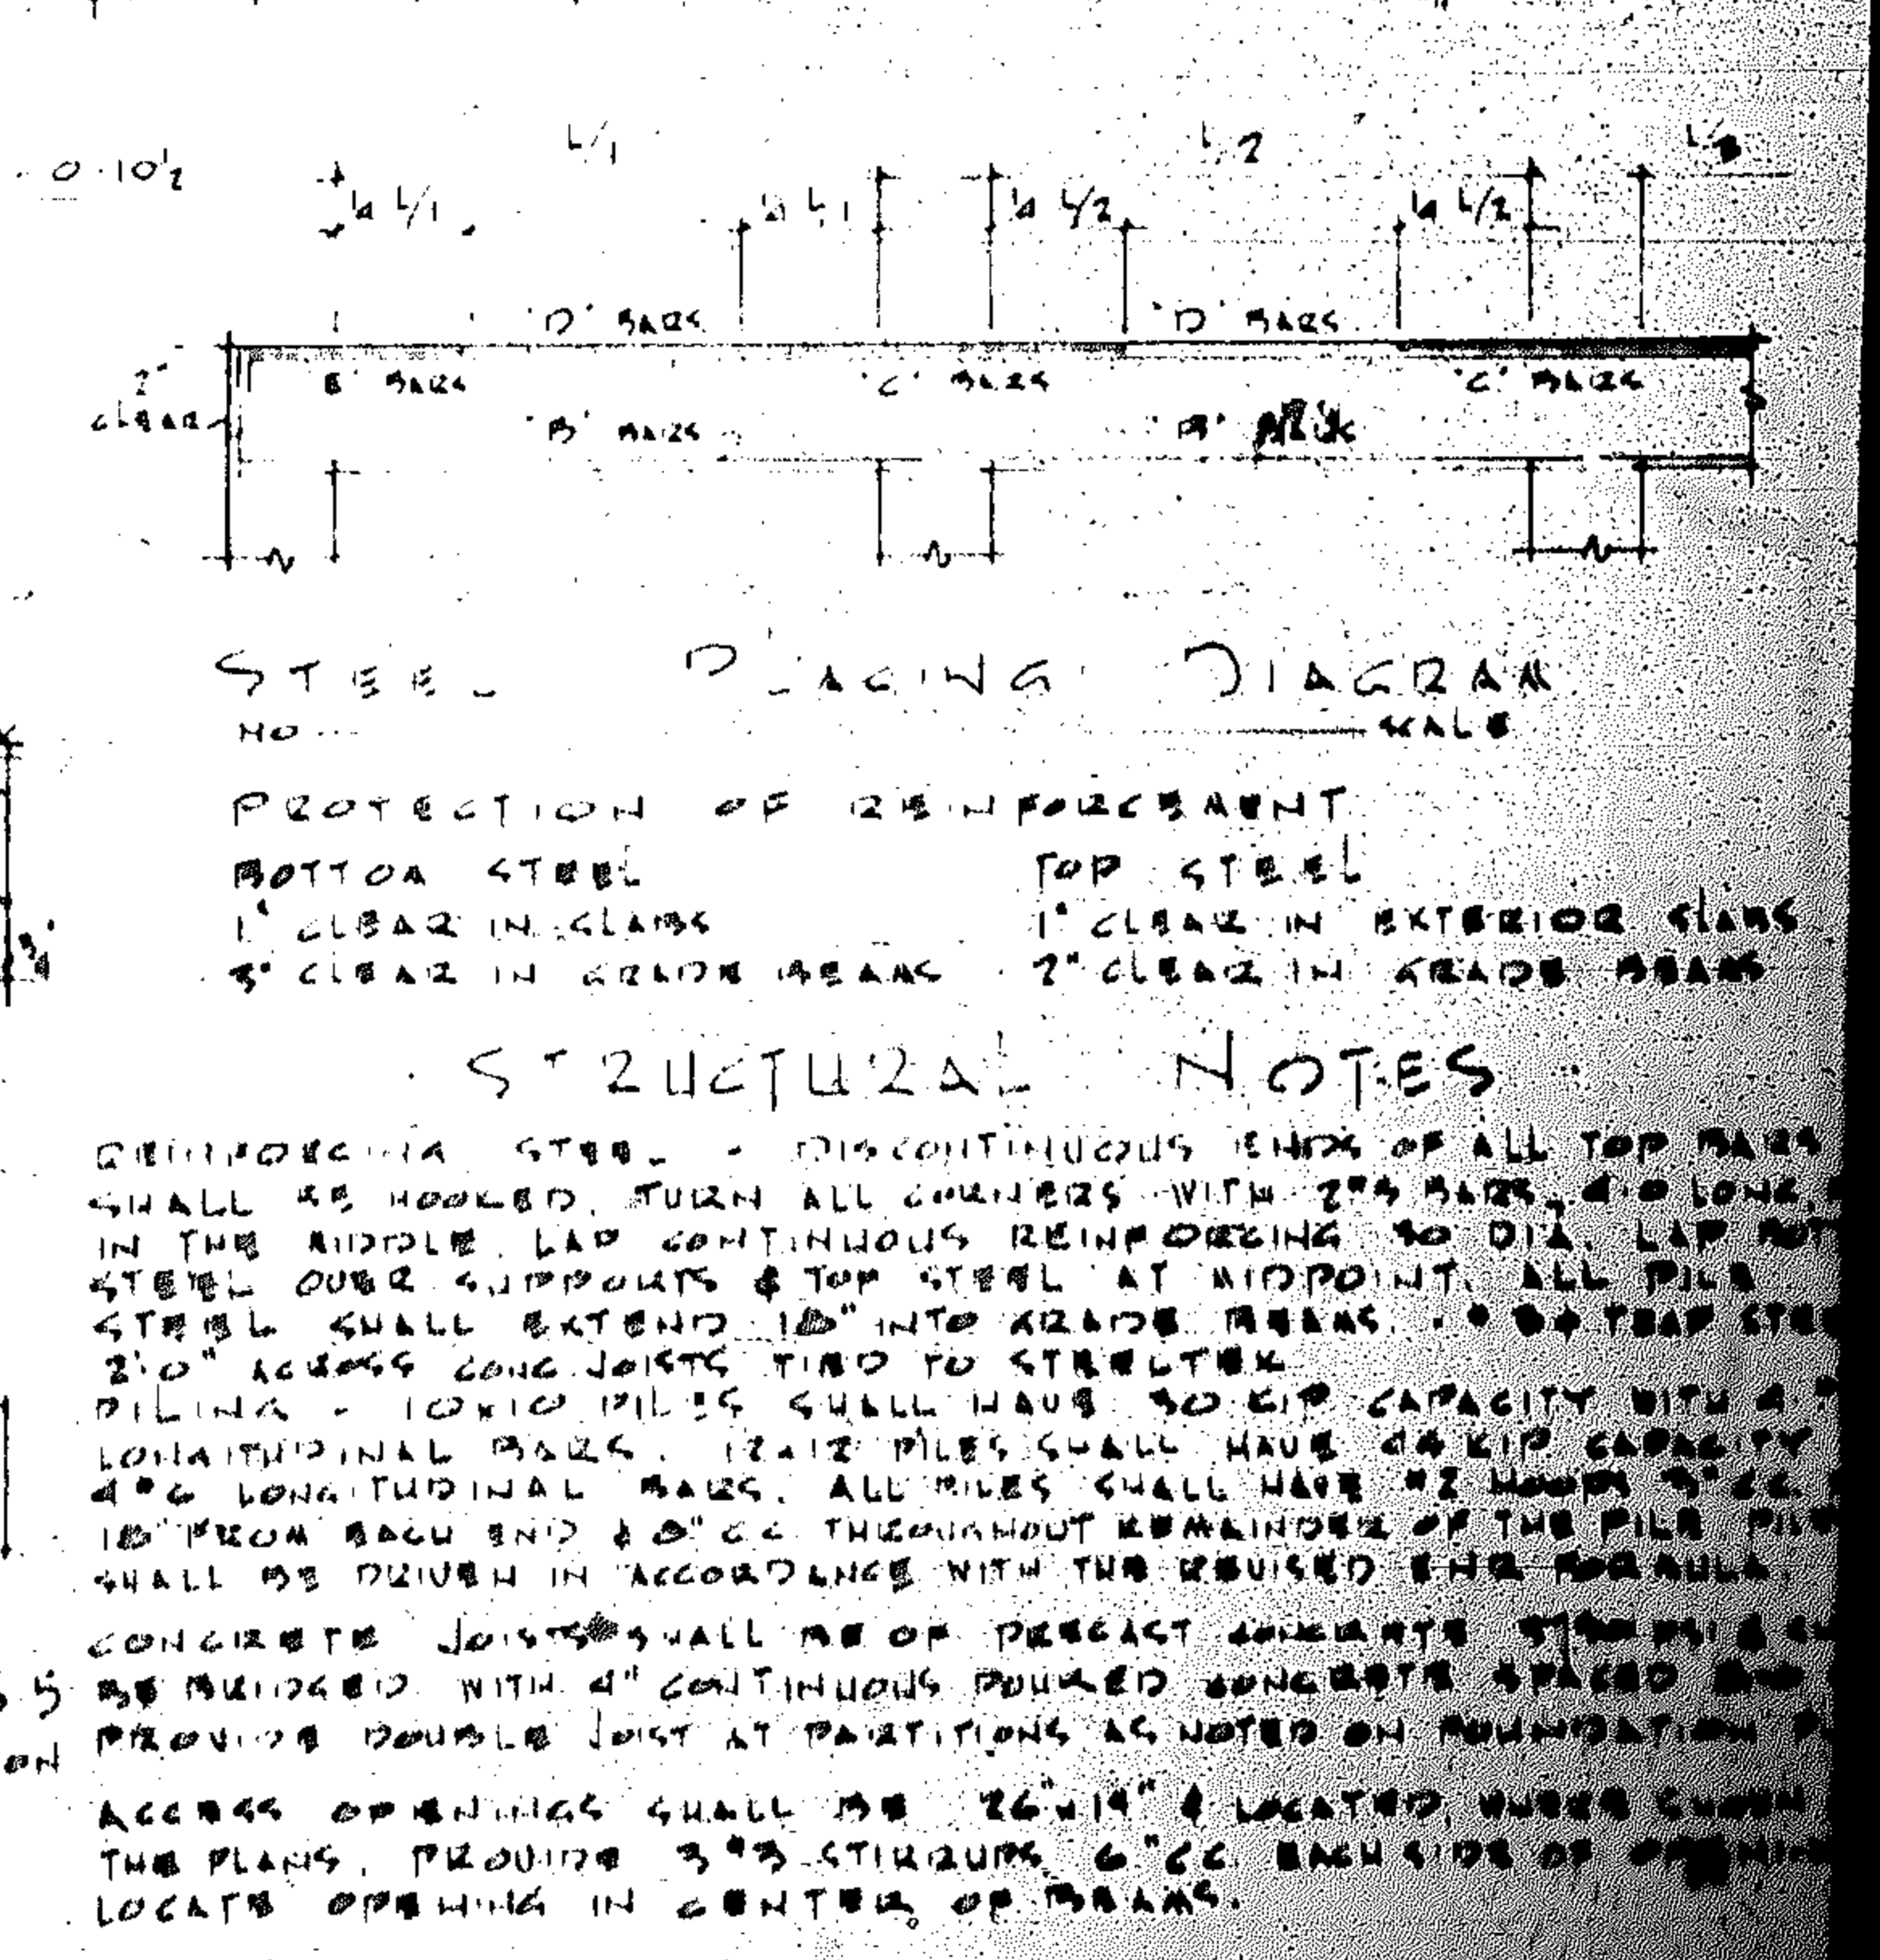 0·10½
L/1
L/2
¼ L/1
¼ L/1
¼ L/2
¼ L/2
'D' BARS
'D' BARS
2"
CLEAR
'E' BARS
'C' BARS
'C' BARS
'B' BARS
'B'
STEEL PLACING DIAGRAM
NO SCALE
PROTECTION OF REINFORCEMENT
BOTTOM STEEL
TOP STEEL
1" CLEAR IN SLABS
1" CLEAR IN EXTERIOR SLABS
3" CLEAR IN GRADE BEAMS
2" CLEAR IN GRADE BEAMS
STRUCTURAL NOTES
REINFORCING STEEL - DISCONTINUOUS ENDS OF ALL TOP BARS
SHALL BE HOOKED. TURN ALL CORNERS WITH BARS, LONG,
IN THE MIDDLE. LAP CONTINUOUS REINFORCING DIA. LAP
STEEL OVER SUPPORTS & TOP STEEL AT MIDPOINT. ALL PILE
STEEL SHALL EXTEND 18" INTO GRADE BEAMS.
2'0" ACROSS CONC JOISTS TIED TO STEELTEX
PILING - 10x10 PILES SHALL HAVE 30 KIP CAPACITY WITH 4
LONGITUDINAL BARS. 12x12 PILES SHALL HAVE KIP CAPACITY
4 #6 LONGITUDINAL BARS. ALL PILES SHALL HAVE #2 HOOPS 3" CC
18" FROM EACH END & 8" CC THROUGHOUT REMAINDER OF THE PILE
SHALL BE DRIVEN IN ACCORDANCE WITH THE REVISED ENR FORMULA.
CONCRETE JOISTS SHALL BE OF PRECAST CONCRETE
BE BRIDGED WITH 4" CONTINUOUS POURED CONCRETE SPACED
PROVIDE DOUBLE JOIST AT PARTITIONS AS NOTED ON FOUNDATION
ON
ACCESS OPENINGS SHALL BE & LOCATED WHERE SHOWN
THE PLANS. PROVIDE 3 #3 STIRRUPS 6" CC EACH SIDE OF
LOCATE OPENING IN CENTER OF BEAMS.